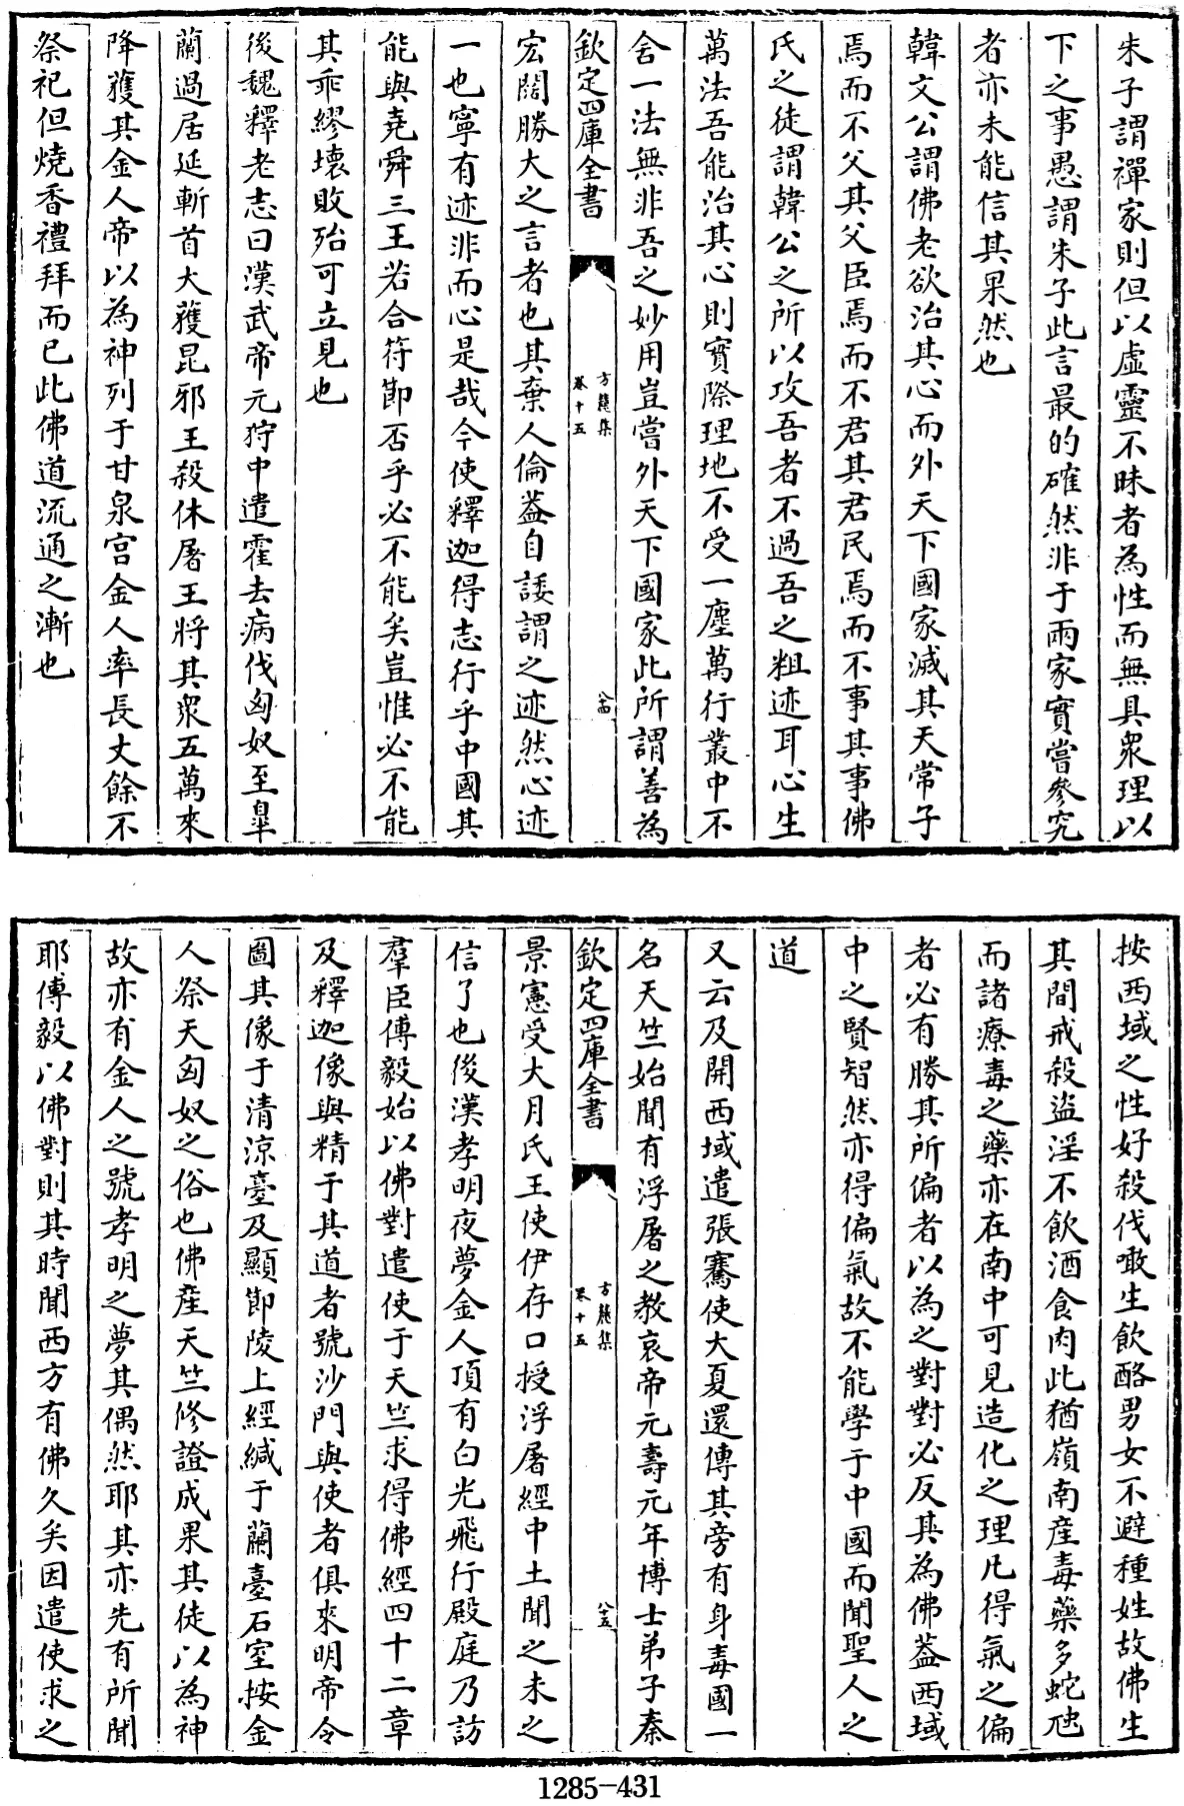 朱子謂禪家則但以虛靈不昧者為性而無具衆理以
下之事愚謂朱子此言最的確然非于兩家實嘗參究
者亦未能信其果然也
韓文公謂佛老欲治其心而外天下國家滅其天常子
焉而不父其父臣焉而不君其君民焉而不事其事佛
氏之徒謂韓公之所以攻吾者不過吾之粗迹耳心生
萬法吾能治其心則實際理地不受一塵萬行叢中不
舍一法無非吾之妙用豈嘗外天下國家此所謂善為
欽定四庫全書
方麓集
卷十五
八十四
宏闊勝大之言者也其棄人倫葢自諉謂之迹然心迹
一也寧有迹非而心是哉今使釋迦得志行乎中國其
能與堯舜三王若合符節否乎必不能矣豈惟必不能
其乖繆壞敗殆可立見也
後魏釋老志曰漢武帝元狩中遣霍去病伐匈奴至臯
蘭過居延斬首大獲昆邪王殺休屠王將其衆五萬來
降獲其金人帝以為神列于甘泉宫金人率長丈餘不
祭祀但燒香禮拜而已此佛道流通之漸也
按西域之性好殺伐噉生飲酪男女不避種姓故佛生
其間戒殺盜淫不飲酒食肉此猶嶺南產毒藥多蛇虺
而諸療毒之藥亦在南中可見造化之理凡得氣之偏
者必有勝其所偏者以為之對對必反其為佛葢西域
中之賢智然亦得偏氣故不能學于中國而聞聖人之
道
又云及開西域遣張騫使大夏還傳其旁有身毒國一
名天竺始聞有浮屠之教哀帝元壽元年博士弟子秦
欽定四庫全書
方麓集
卷十五
八十五
景憲受大月氏王使伊存口授浮屠經中土聞之未之
信了也後漢孝明夜夢金人頂有白光飛行殿庭乃訪
羣臣傅毅始以佛對遣使于天竺求得佛經四十二章
及釋迦像與精于其道者號沙門與使者俱來明帝令
圖其像于清涼臺及顯節陵上經緘于蘭臺石室按金
人祭天匈奴之俗也佛產天竺修證成果其徒以為神
故亦有金人之號孝明之夢其偶然耶其亦先有所聞
耶傅毅以佛對則其時聞西方有佛久矣因遣使求之
1285-431